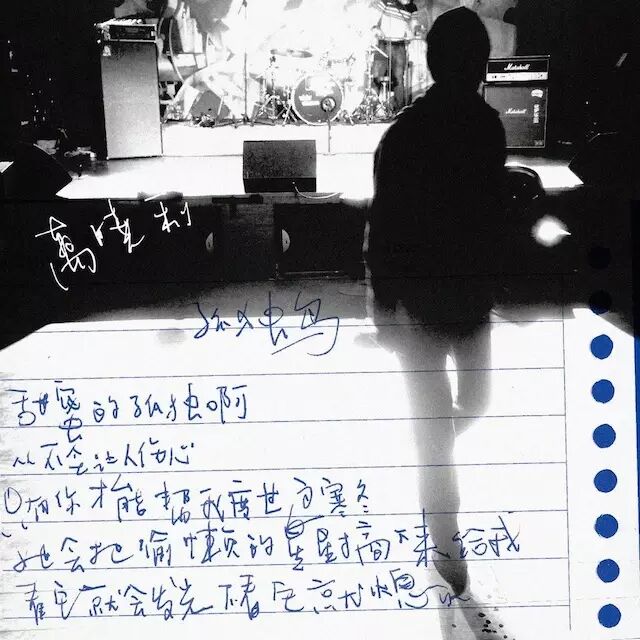 Marshall
Marshall
萬曉利
孤独鸟
甜蜜的孤独啊
从不会让人伤心
只有你才能帮我度过寒冬
她会把慵懒的星星摘下来给我
看它就会发光 不看它就熄